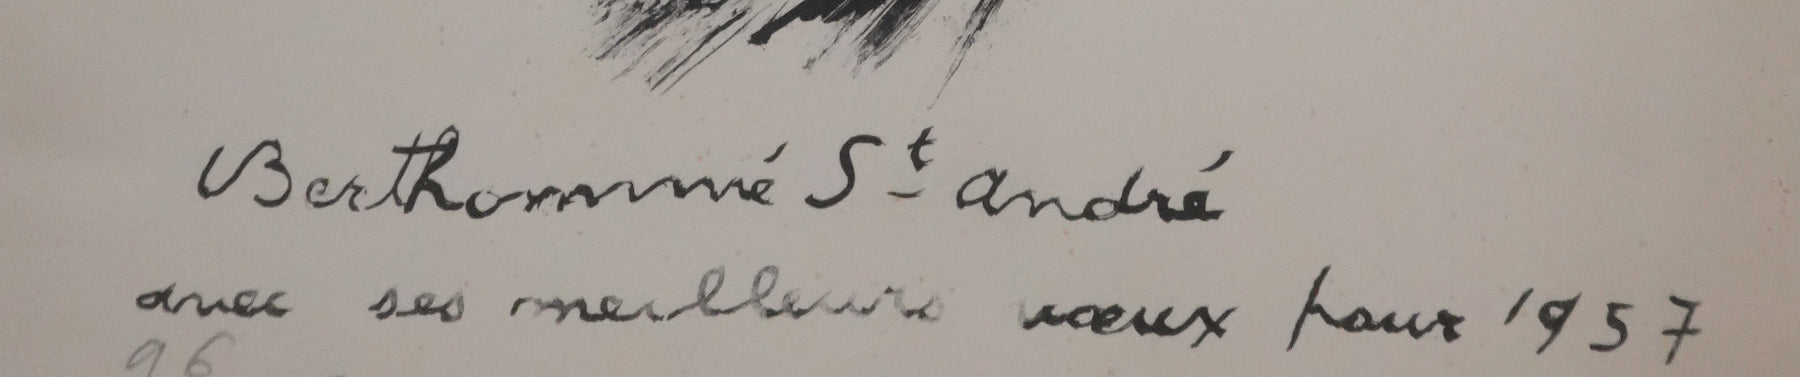 Berthommé St André
avec ses meilleurs vœux pour 1957
96